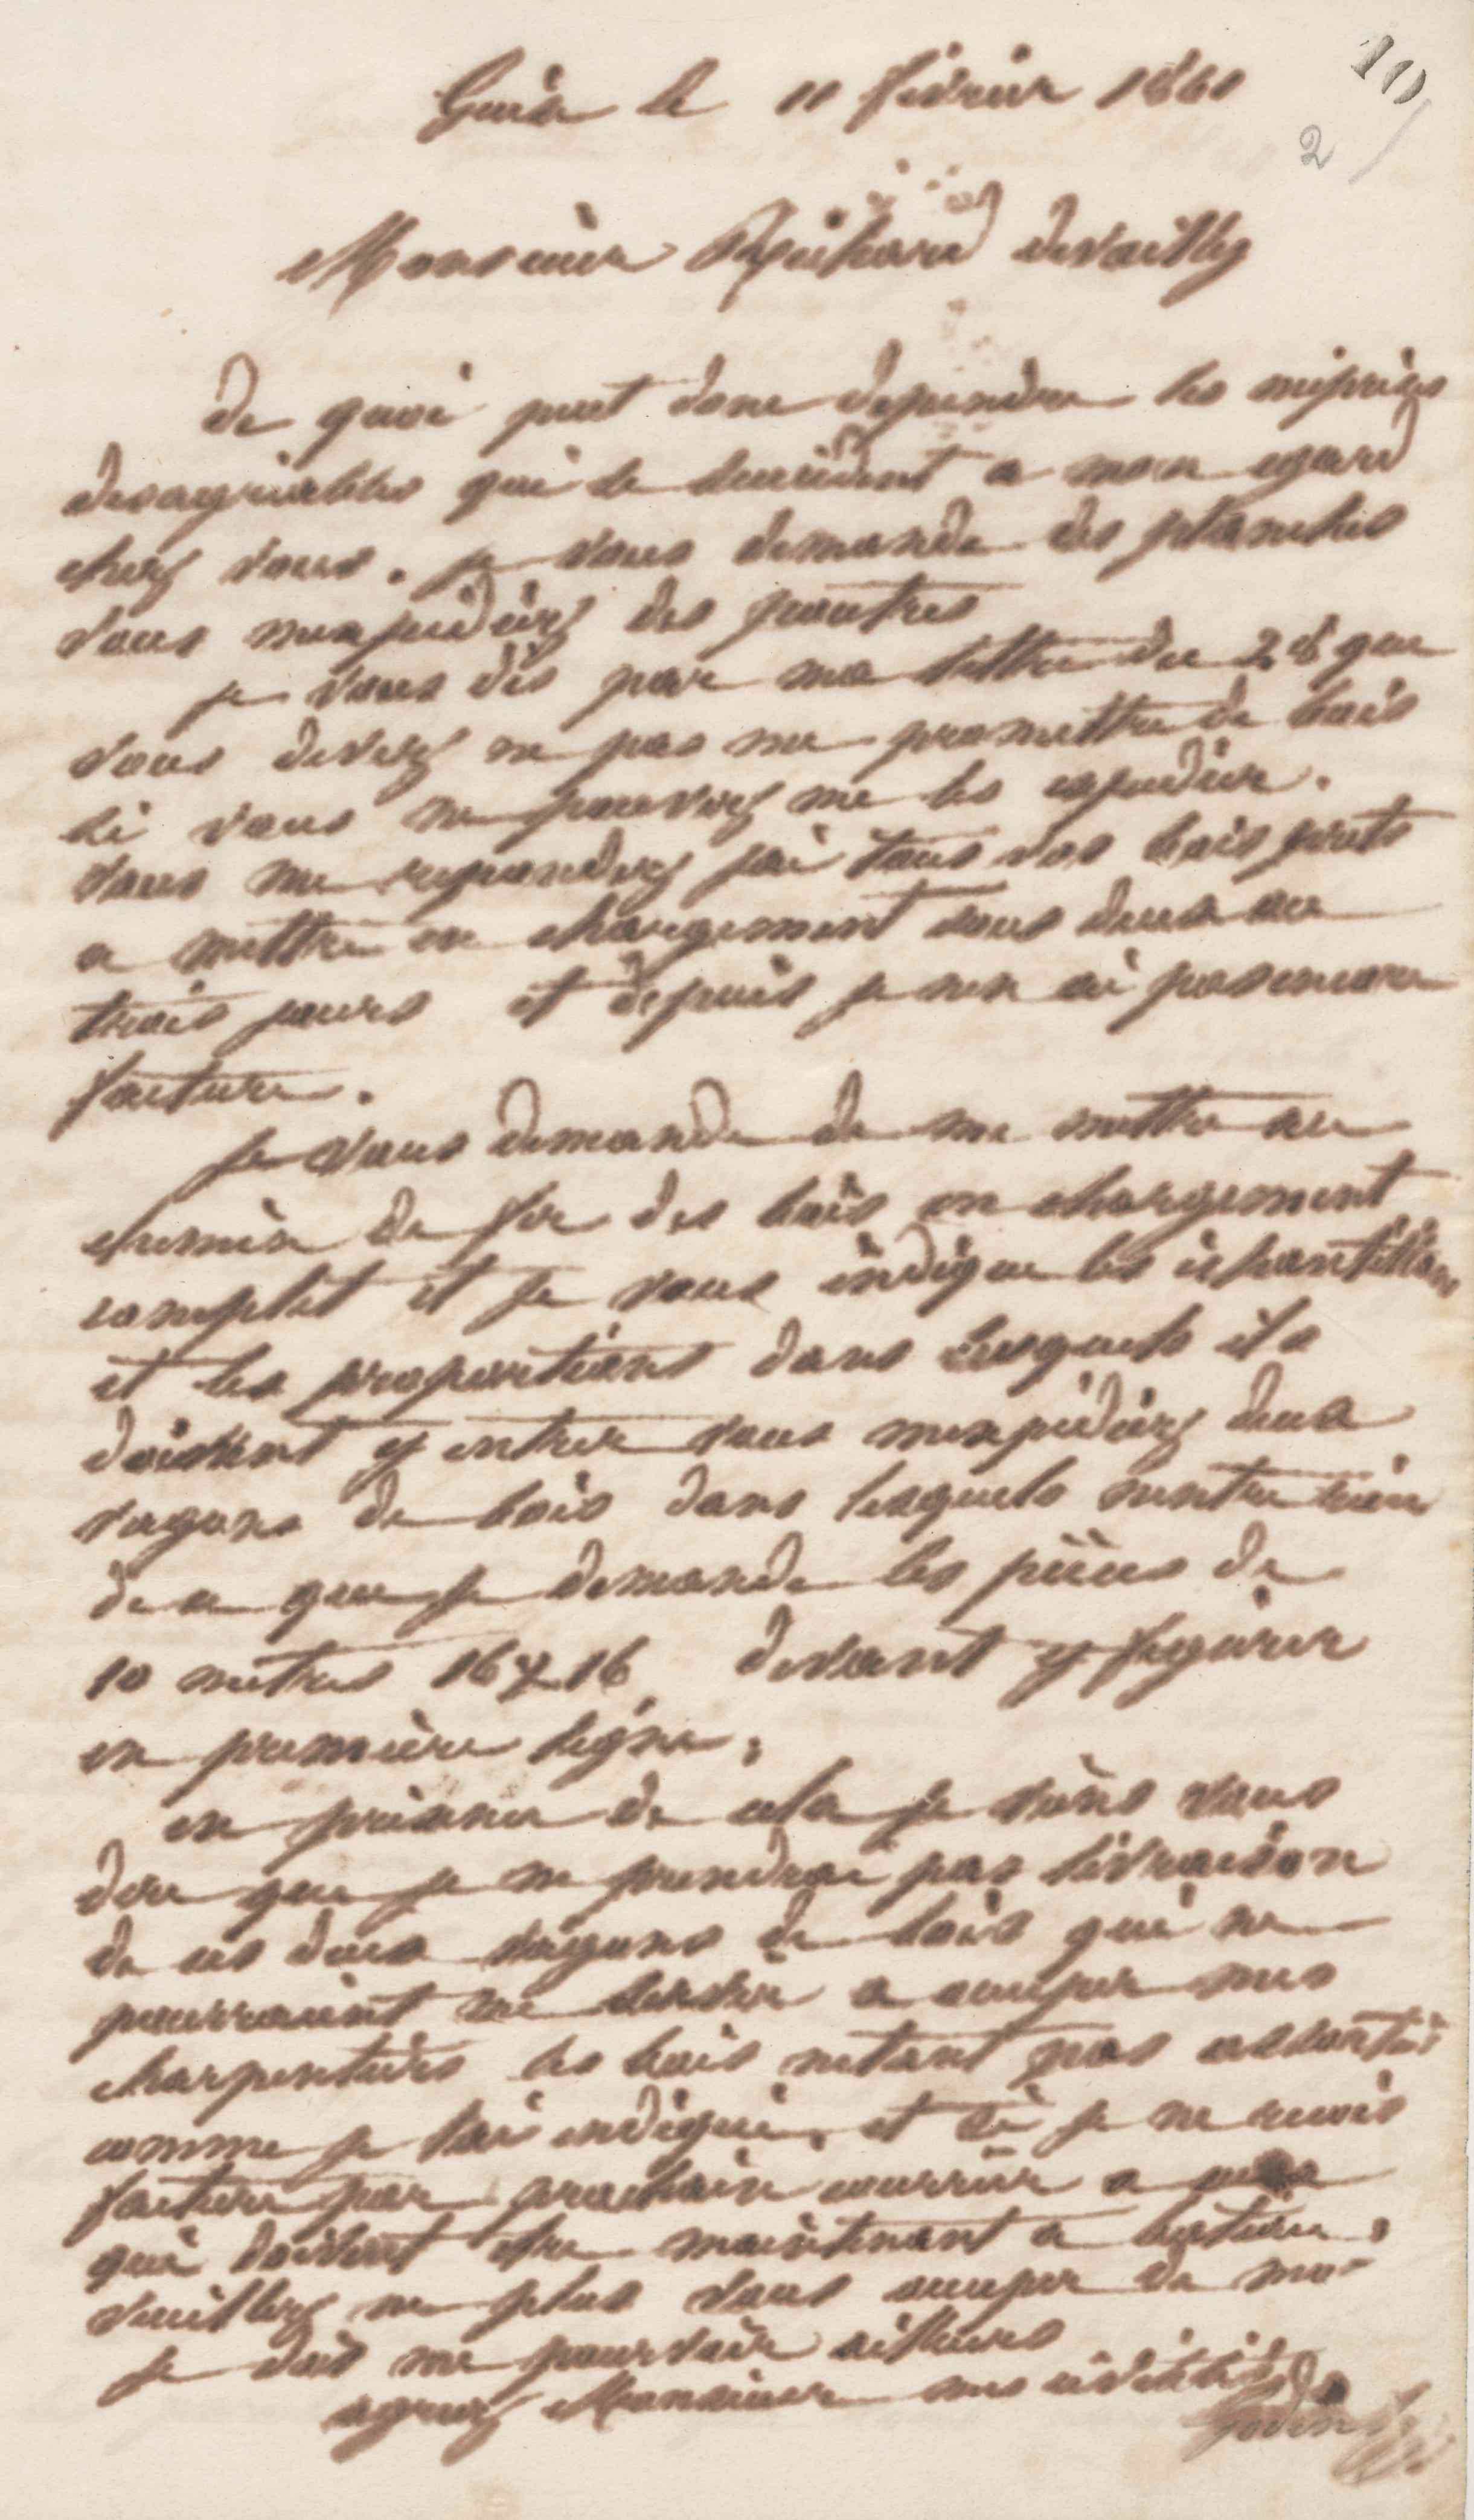 10
2
Guise le 11 février 1861
Monsieur devailly
de quoi peut donc dependre lesméprises
desagréables qui se succèdent a mon egard
chez vous. je vous demande des planches
vous mexpédiez des poutres
je vous dis par ma lettre du 28 que
vous devez ne pas me promettre de bois
si vous ne pouvez me les expedier.
vous me repondez jai tous vos bois prets
a mettre en chargement sous deux ou
trois jours et depuis je nen ai pas encore
facture.
je vous demande de me mettre au
chemin de fer des bois en chargement
complet et je vous indique les échantillons
et les proportions dans lesquels ils
doivent y entrer vous mexpédiez deux
vagons de bois dans lesquels nentre rien
de ce que je demande les pièces de
10 metres 16 X 16 devant y figurer
en première ligne.
en présence de cela je viens vous
dire que je ne prendrai pas livraison
de ces deux vagons de bois qui ne
pourraient me servir a occuper mes
charpentiers les bois netant pas assortis
comme je lai indiqué, et si je ne recois
facture par prochain courrier a
qui doivent etre maintenant a
veuillez ne plus vous occuper de moi
je dois me pourvoir ailleurs
agreez Monsieur mes civilités
Godin